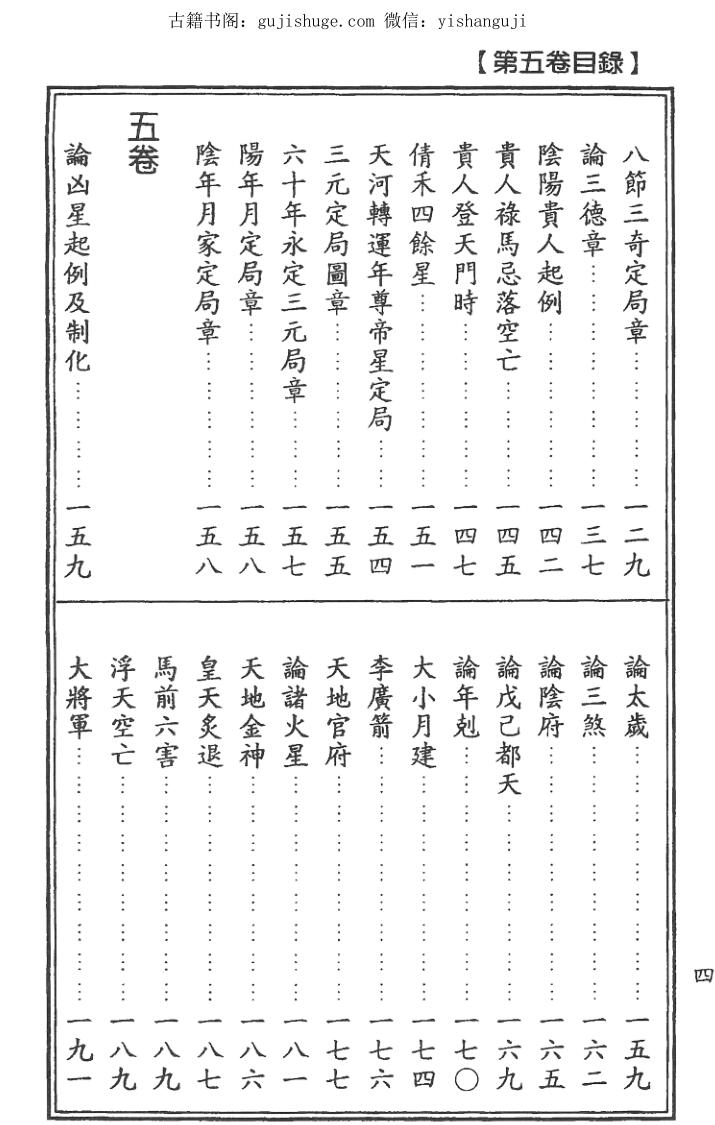 古籍书阁：gujishuge.com 微信：yishanguji
【第五卷目錄】
八節三奇定局章⋯⋯⋯⋯⋯一二九
論三德章⋯⋯⋯⋯⋯⋯⋯⋯一三七
陰陽貴人起例⋯⋯⋯⋯⋯⋯一四二
貴人祿馬忌落空亡⋯⋯⋯⋯一四五
貴人登天門時⋯⋯⋯⋯⋯⋯一四七
倩禾四餘星⋯⋯⋯⋯⋯⋯⋯一五一
天河轉運年尊帝星定局⋯⋯一五四
三元定局圖章⋯⋯⋯⋯⋯⋯一五五
六十年永定三元局章⋯⋯⋯一五七
陽年月定局章⋯⋯⋯⋯⋯⋯一五八
陰年月家定局章⋯⋯⋯⋯⋯一五八
五卷
論凶星起例及制化⋯⋯⋯⋯一五九
論太歲⋯⋯⋯⋯⋯⋯⋯⋯⋯一五九
論三煞⋯⋯⋯⋯⋯⋯⋯⋯⋯一六二
論陰府⋯⋯⋯⋯⋯⋯⋯⋯⋯一六五
論戊己都天⋯⋯⋯⋯⋯⋯⋯一六九
論年剋⋯⋯⋯⋯⋯⋯⋯⋯⋯一七〇
大小月建⋯⋯⋯⋯⋯⋯⋯⋯一七四
李廣箭⋯⋯⋯⋯⋯⋯⋯⋯⋯一七六
天地官府⋯⋯⋯⋯⋯⋯⋯⋯一七七
論諸火星⋯⋯⋯⋯⋯⋯⋯⋯一八一
天地金神⋯⋯⋯⋯⋯⋯⋯⋯一八六
皇天炙退⋯⋯⋯⋯⋯⋯⋯⋯一八七
馬前六害⋯⋯⋯⋯⋯⋯⋯⋯一八九
浮天空亡⋯⋯⋯⋯⋯⋯⋯⋯一八九
大將軍⋯⋯⋯⋯⋯⋯⋯⋯⋯一九一
四